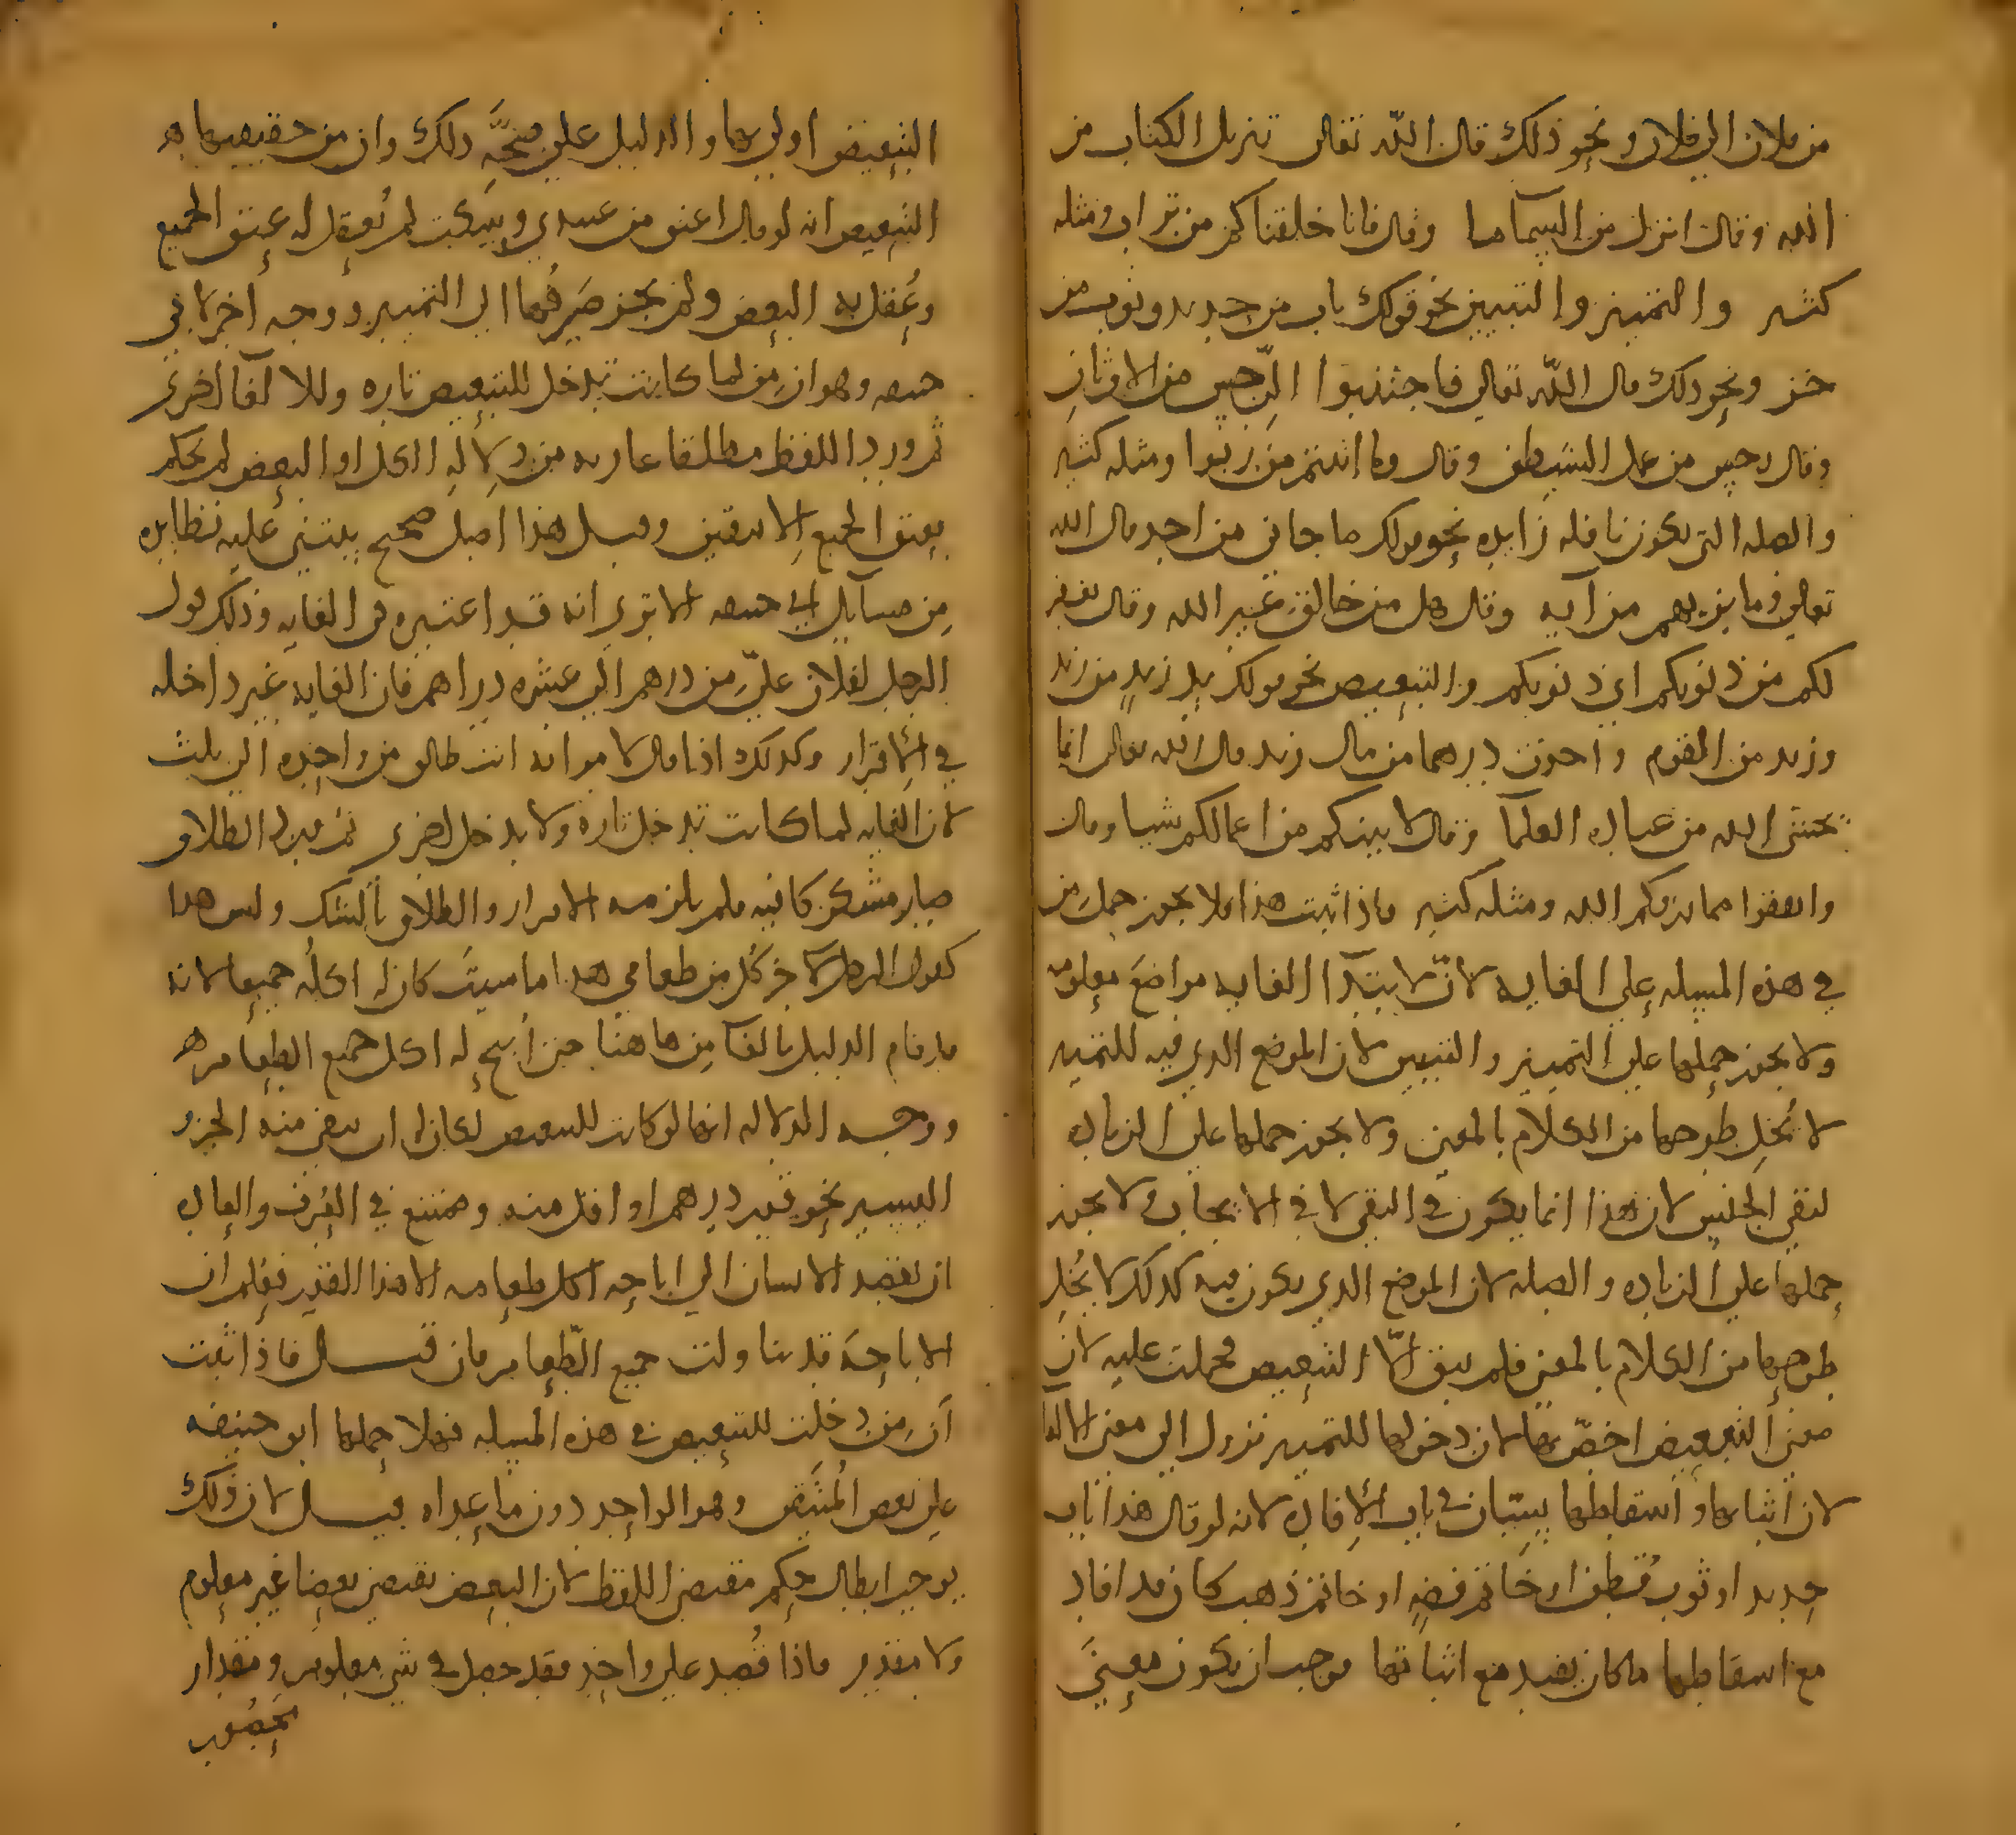 من فلان الى فلان ونحو ذلك قال الله تعالى تنزيل الكتاب من
الله وقال انزل من السماء ما وقال فانا خلقناكم من تراب ومثله
كثير والتمييز والتبيين نحو قولك باب من حديد وثوب من
خز ونحو ذلك قال الله تعالى فاجتنبوا الرجس من الاوثان
وقال رجس من عمل الشيطن وقال وما اتيتم من ربوا ومثله كثير
والصله التي يكون نافله زايده نحو قولك ما جاني من احد قال الله
تعالى وما نريهم من آيه وقال هل من خالق غير الله وقال يغفر
لكم من ذنوبكم اي ذنوبكم والتبعيض نحو قولك يد زيد من زيد
وزيد من القوم واخذت درهما من مال زيد قال الله تعالى انما
يخشى الله من عباده العلما وقال لا يلتكم من اعمالكم شيا وقال
وانفقوا مما رزقكم الله ومثله كثير فاذا ثبت هذا فلا يجوز حمل من
في هذه المسله على الغايه لان لابتدا الغايه مواضع معلومه
ولا يجوز حملها على التمييز والتبيين لان الموضع الذي فيه للتمييز
لا يخل طرحها من الكلام بالمعنى ولا يجوز حملها على الزياده
لنفي الجنس لان هذا انما يكون في النفي لا في الايجاب ولا يجوز
حملها على الزياده والصله لان الموضع الذي يكون فيه كذلك لا يخل
طرحها من الكلام بالمعنى فلم يبق الا التبعيض فحملت عليه لان
معنى التبعيض اخص بها لان دخولها للتمييز تزول الى معنى الالغا
لان اثباتها واسقاطها سيان في باب الافاده لانه لو قال هذا باب
حديد او ثوب قطن او خاتم فضه او خاتم ذهب كان قد افاد
مع اسقاطها ما كان يفيد مع اثباتها فوجب ان يكون معنى
التبعيض اولى بها والدليل على صحة ذلك وان من حقيقتها هو
التبعيض انه لو قال اعتق من عبيدي وسكت لم يعقل له عتق الجميع
وعقل به البعض ولم يجز صرفها الى التمييز ووجه اخر لابي
حنيفه وهو ان من لما كانت تدخل للتبعيض تاره وللالغا اخرى
ثم ورد اللفظ مطلقا عاريه من دلالة الكل او البعض لم يحكم
بعتق الجميع الا بيقين وقيل هذا اصل صحيح يبتني عليه نظايره
من مسايل ابي حنيفه الا ترى انه قد اعتبره في الغايه وذلك قول
الرجل لفلان علي من درهم الى عشره دراهم فان الغايه غير داخله
في الاقرار وكذلك اذا قال لامراته انت طالق من واحده الى ثلث
لان الغايه لما كانت تدخل تاره ولا تدخل اخرى ثم ورد الطلاق
صار مشكوكا فيه فلم يلزمه الاقرار والطلاق بالشك وليس هذا
كقول الرجل لآخر كل من طعامي هذا ما شيت كان له اكله جميعا لانه
قد قام الدليل بالغا من هاهنا حتى ابيح له اكل جميع الطعام
ووجه الدلاله انها لو كانت للتبعيض لكان له ان يبقي منه الجزو
اليسير نحو قدر درهم او اقل منه وممتنع في العرف والعاده
ان يقصد الانسان الى اباحة اكل طعامه الا هذا القدر فعلم ان
الاباحة قد تناولت جميع الطعام فان قيل فاذا ثبت
ان من دخلت للتبعيض في هذه المسله فهلا حملها ابو حنيفه
على بعض وهو الواحد دون ما عداه قيل لان ذلك
يوجب ابطال حكم مقتضى اللفظ لان البعض يقتضي بعضا غير معلوم
ولا مقدر فاذا قصد على واحد فقد حصل في شي معلوم ومقدار